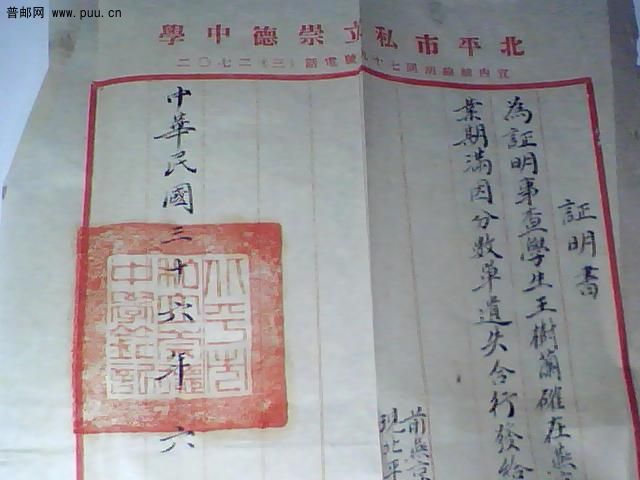 普邮网
www.puu.cn
北平市私立崇德中學
宣內絨線胡同七十九號電話(三)二七〇二
証明書
為証明事查學生王樹蘭確在燕京
業期滿因分數單遺失合行發給
前燕京
現北平
中華民國三十六年六